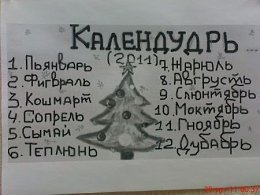 КАЛЕНДУДРЬ
(2011)
1. Пьянварь
2. Фигвраль
3. Кошмарт
4. Сопрель
5. Сымай
6. Теплюнь
7. Жарюль
8. Авгрусть
9. Слюнтябрь
10. Моктябрь
11. Гноябрь
12. Дубабрь